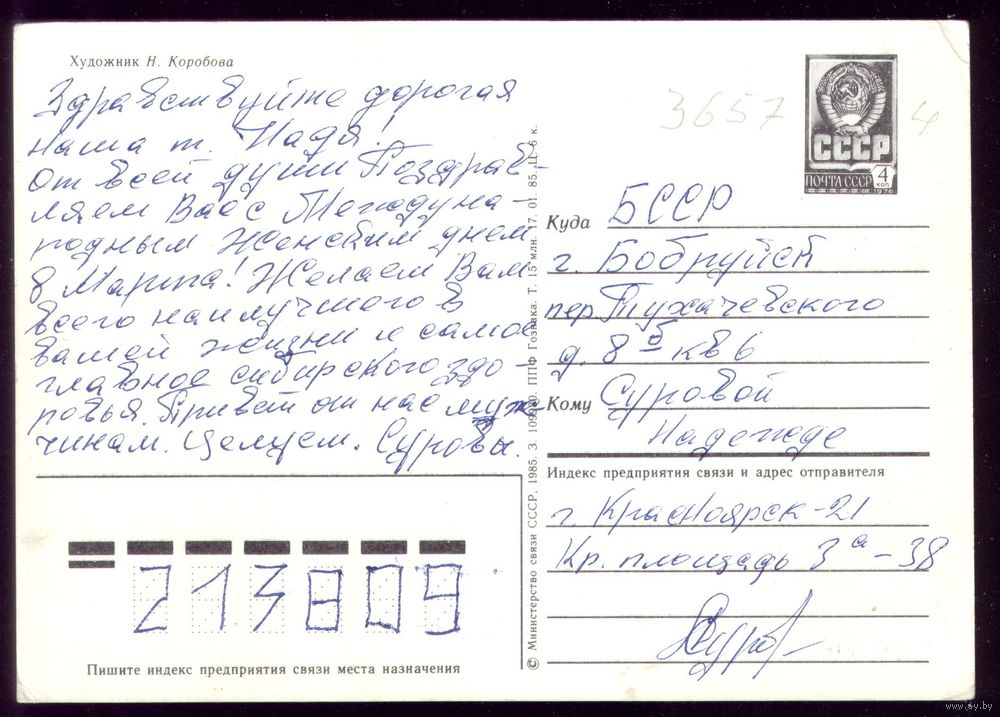 Художник Н. Коробова
Здравствуйте дорогая
наша т. Надя!
От всей души Поздрав-
ляем Вас с Междуна-
родным Женским днем
8 Марта! Желаем Вам
всего наилучшего в
вашей жизни и самое
главное сибирского здо-
ровья. Привет от нас муж
чинам. Целуем. Суровы.
3657
4
СССР
ПОЧТА СССР
4
КОП
1976
Куда БССР
г. Бобруйск
пер Тухачевского
д. 8 б кв 6
Кому Суровой
Надежде
Индекс предприятия связи и адрес отправителя
г. Красноярск-21
Кр. площадь 3а-38
Суров
© Министерство связи СССР, 1985. З. ППФ Гознака. Т. 15 млн. 17. 01. 85. Ц. 6 к.
213809
Пишите индекс предприятия связи места назначения
www.ay.by